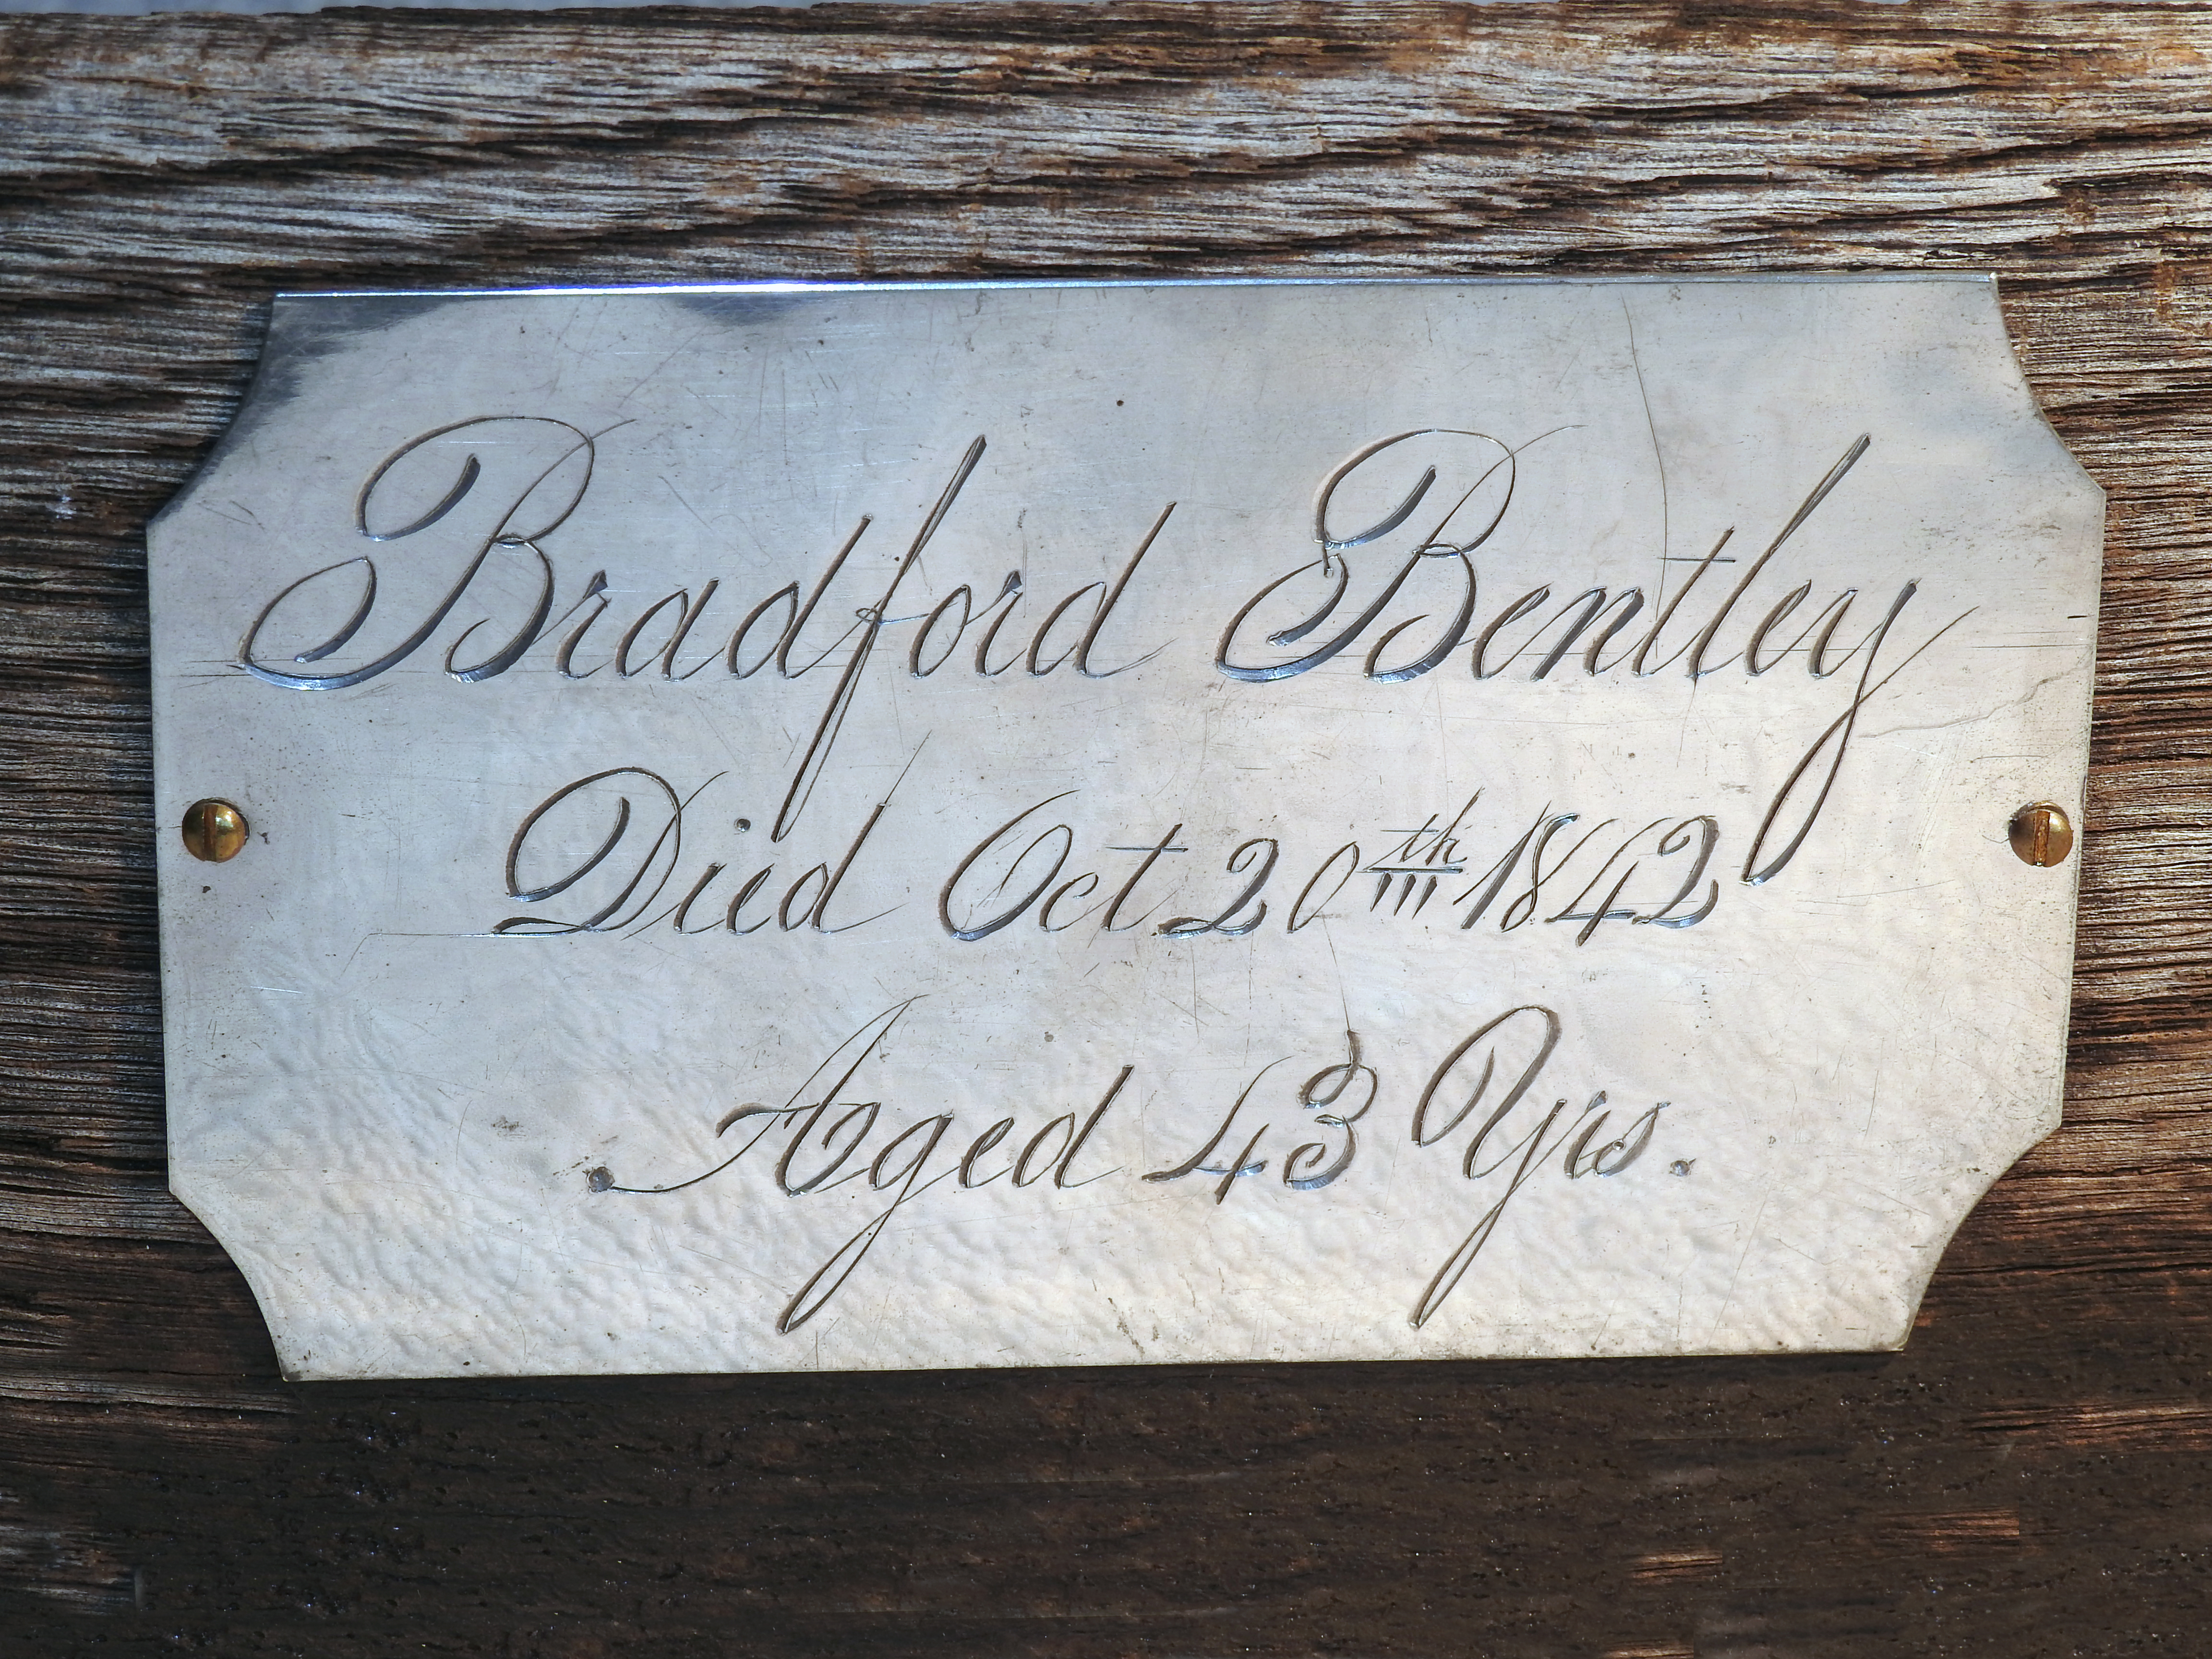 Bradford Bentley
Died Oct 20th 1842
Aged 43 Yrs.